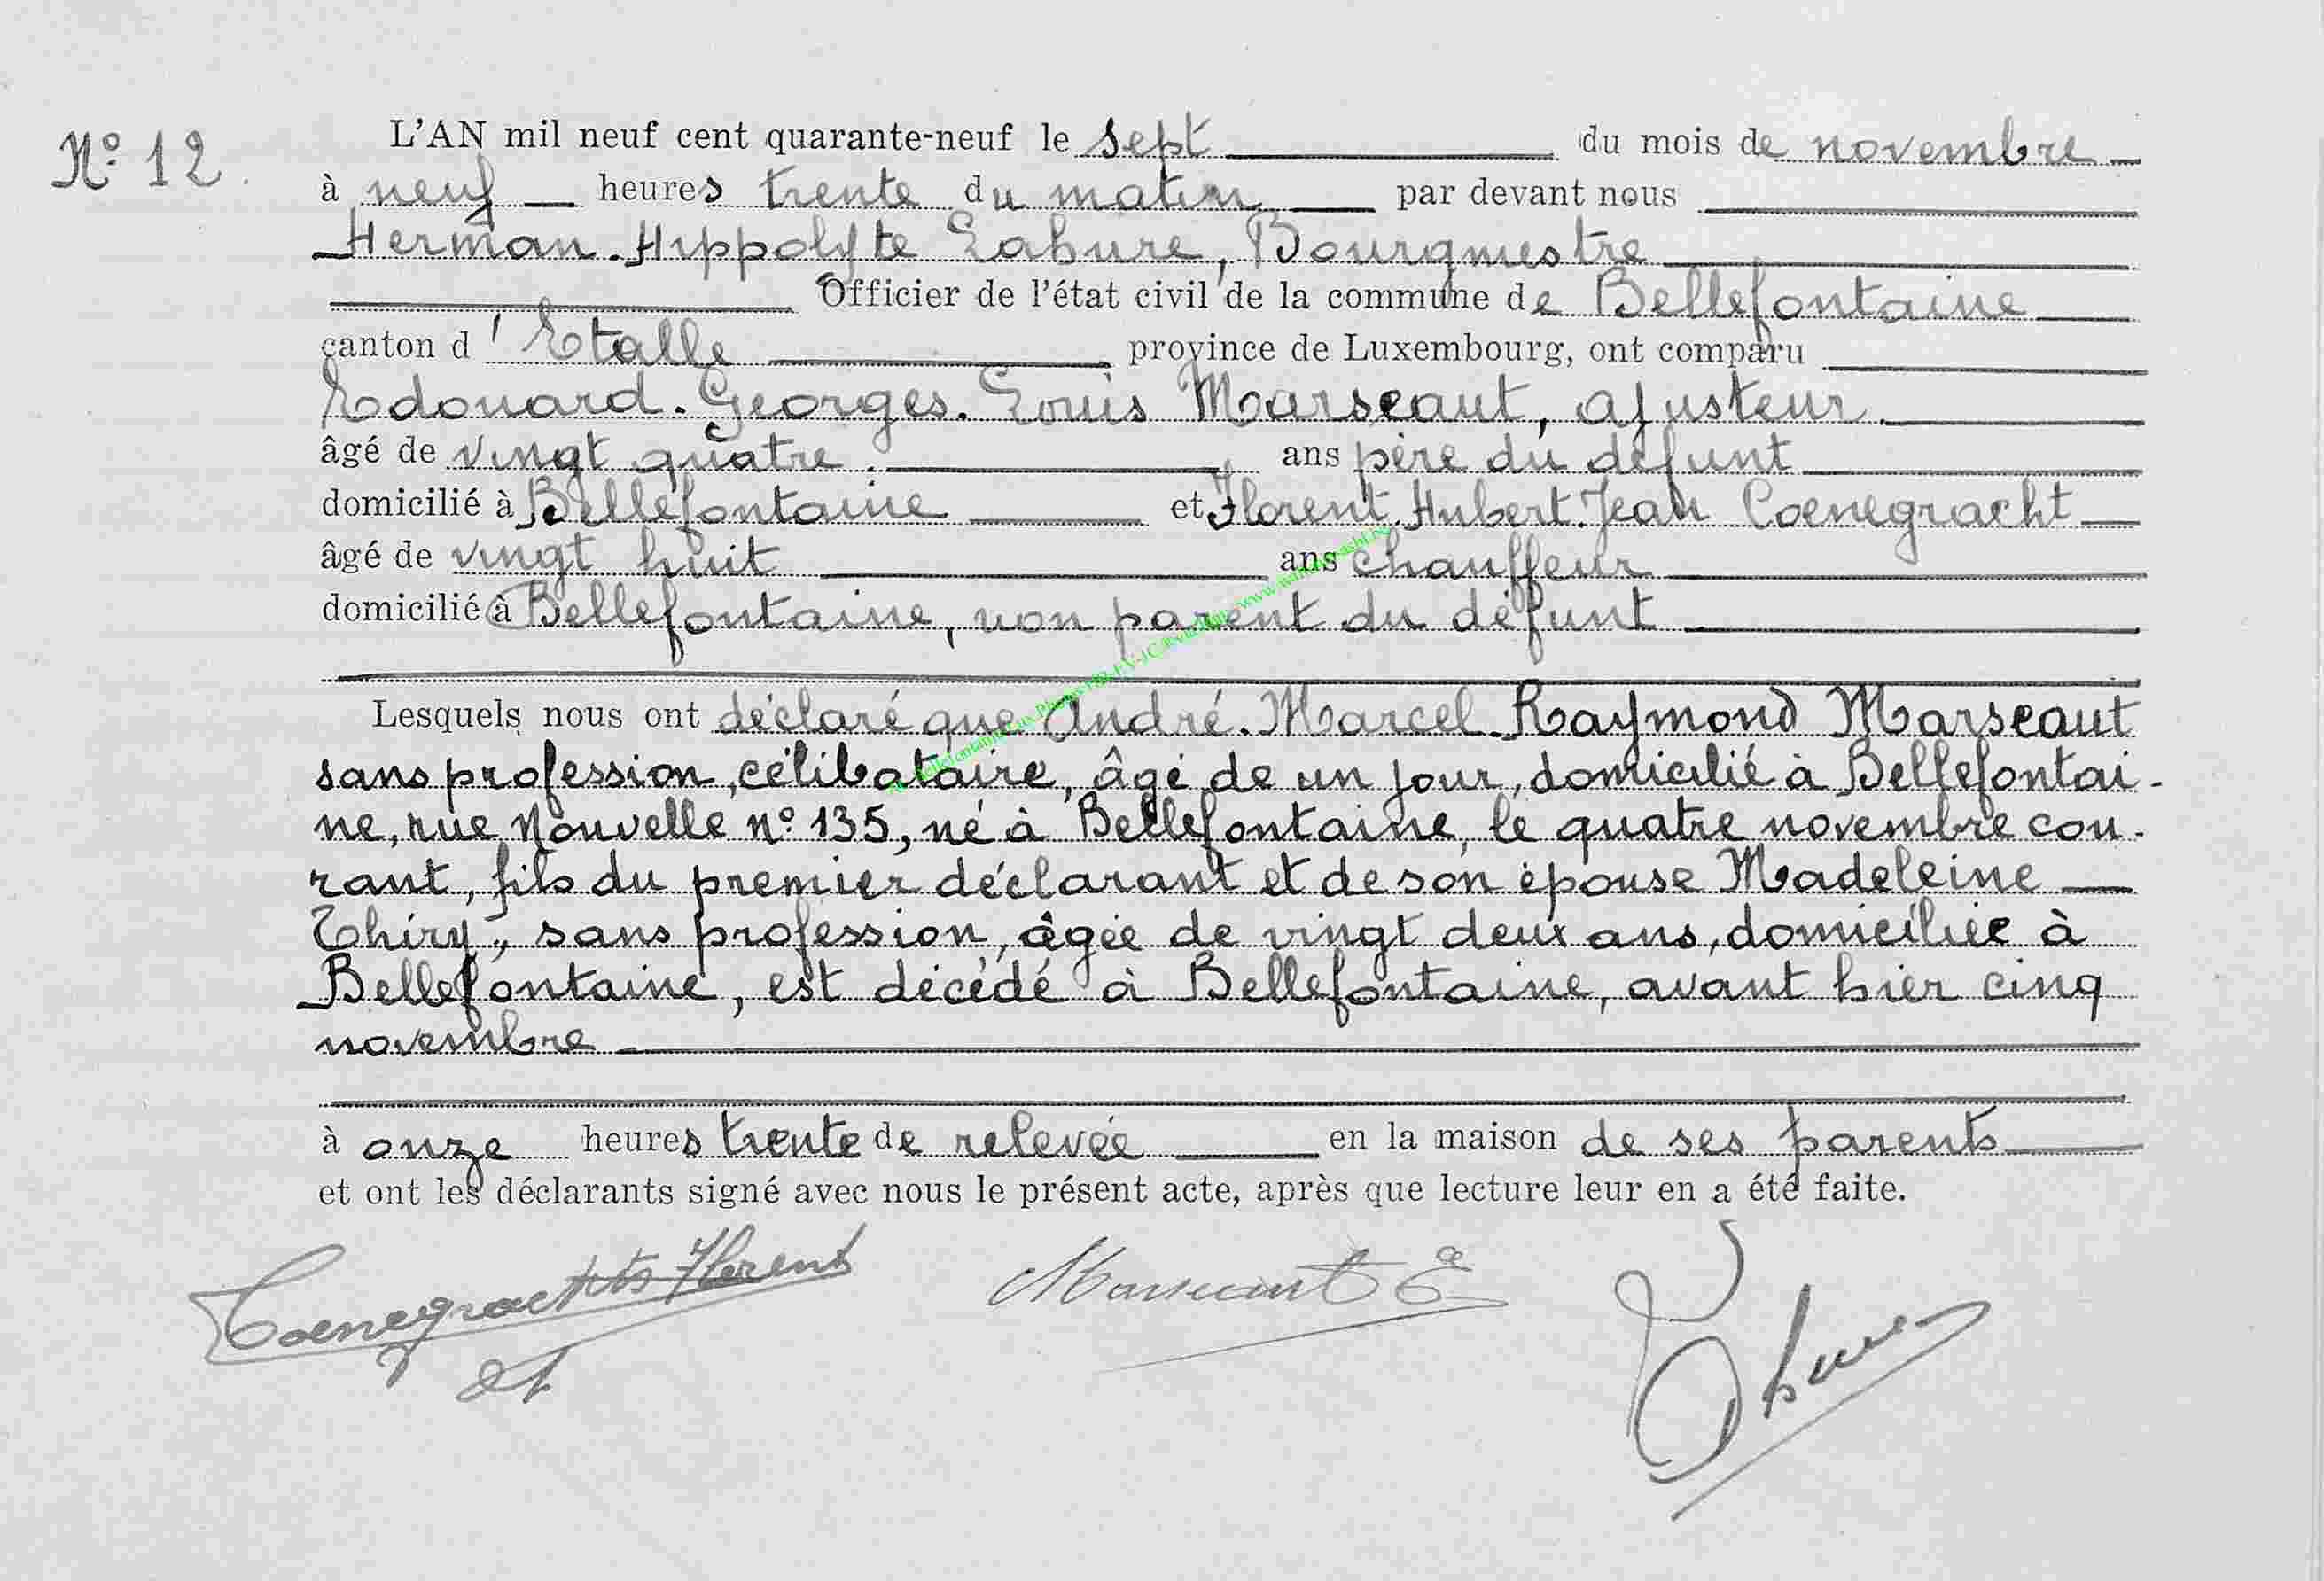 N° 12.
L'AN mil neuf cent quarante-neuf le sept du mois de novembre
à neuf heures trente du matin par devant nous
Herman-Hippolyte Lahure, Bourgmestre
Officier de l'état civil de la commune de Bellefontaine
canton d'Etalle province de Luxembourg, ont comparu
Edouard-Georges-Louis Marseaut, ajusteur
âgé de vingt quatre ans père du défunt
domicilié à Bellefontaine et Florent-Hubert-Jean Coenegracht
âgé de vingt huit ans chauffeur
domicilié à Bellefontaine, non parent du défunt
Lesquels nous ont déclaré que André-Marcel-Raymond Marseaut
sans profession, célibataire, âgé de un jour, domicilié à Bellefontai-
ne, rue Nouvelle n° 135, né à Bellefontaine, le quatre novembre cou-
rant, fils du premier déclarant et de son épouse Madeleine
Thiry, sans profession, âgée de vingt deux ans, domiciliée à
Bellefontaine, est décédé à Bellefontaine, avant hier cinq
novembre
à onze heures trente de relevée en la maison de ses parents
et ont les déclarants signé avec nous le présent acte, après que lecture leur en a été faite.
Coenegrachts Florent
Marseaut E